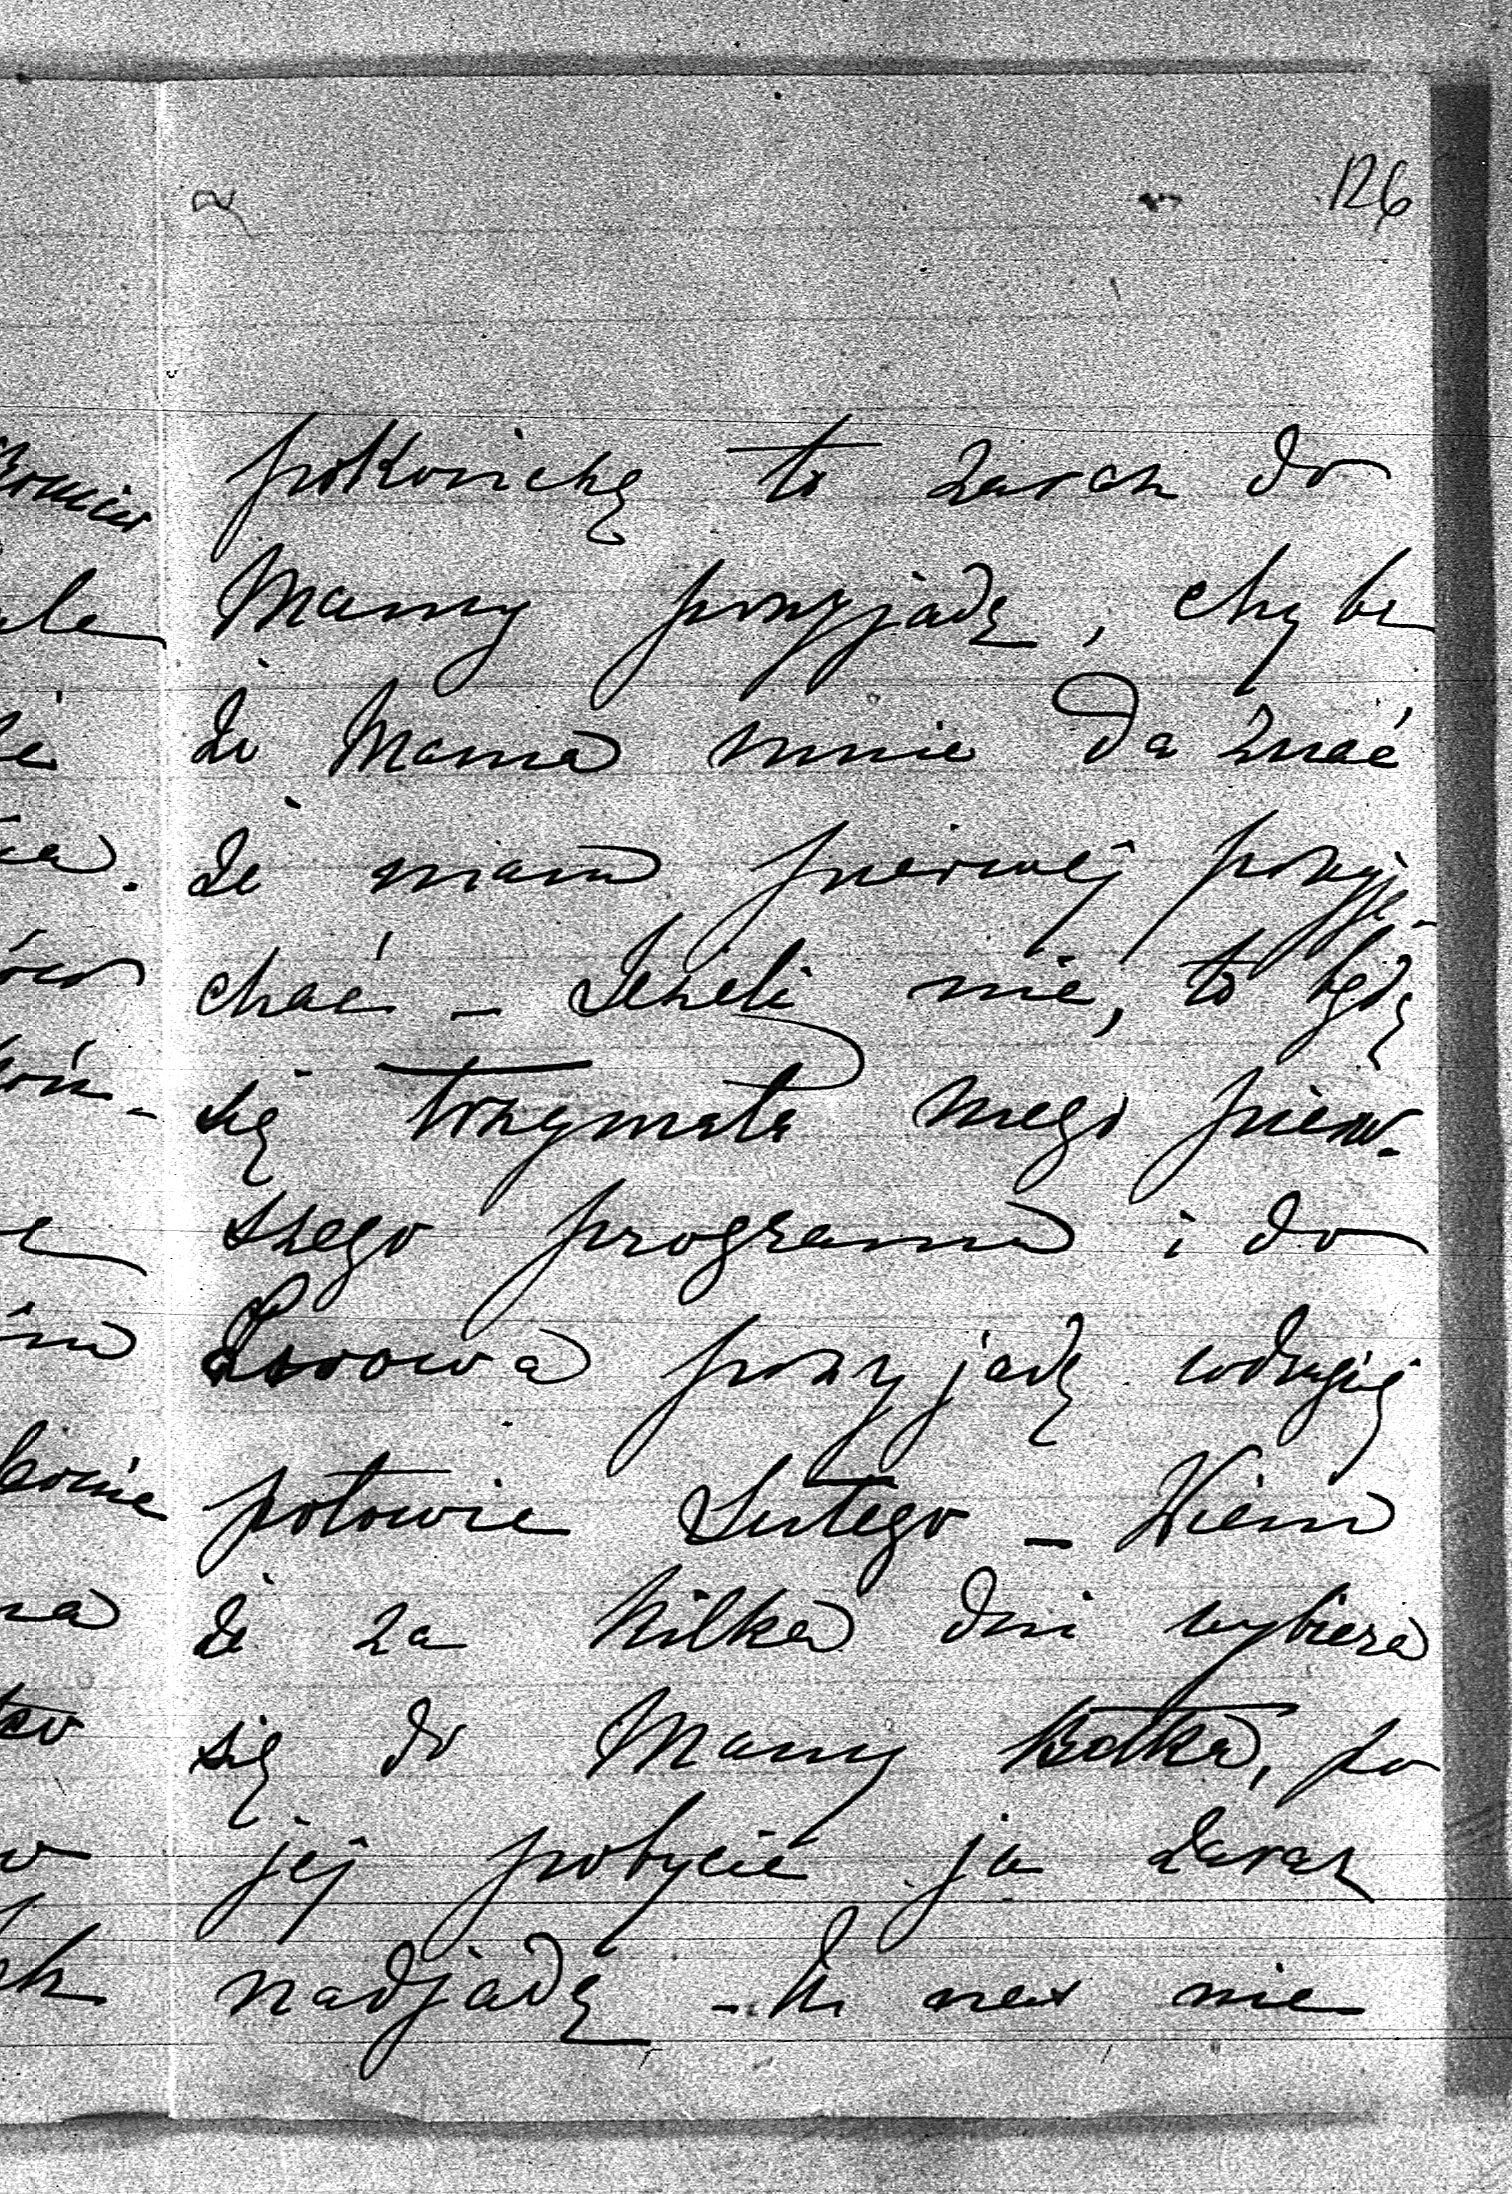 126
pokończę to zaraz do
Mamy przyjadę, chyba
że Mama mnie da znać
że mam pierwej przyje-
chać – Jeżeli nie, to będę
się trzymała mego pierw-
szego programu i do
Lwowa przyjadę w drugiej
połowie Lutego – Wiem
że za kilka dni wybiera
się do Mamy ,po
jej pobycie ja zaraz
nadjadę – nas nie